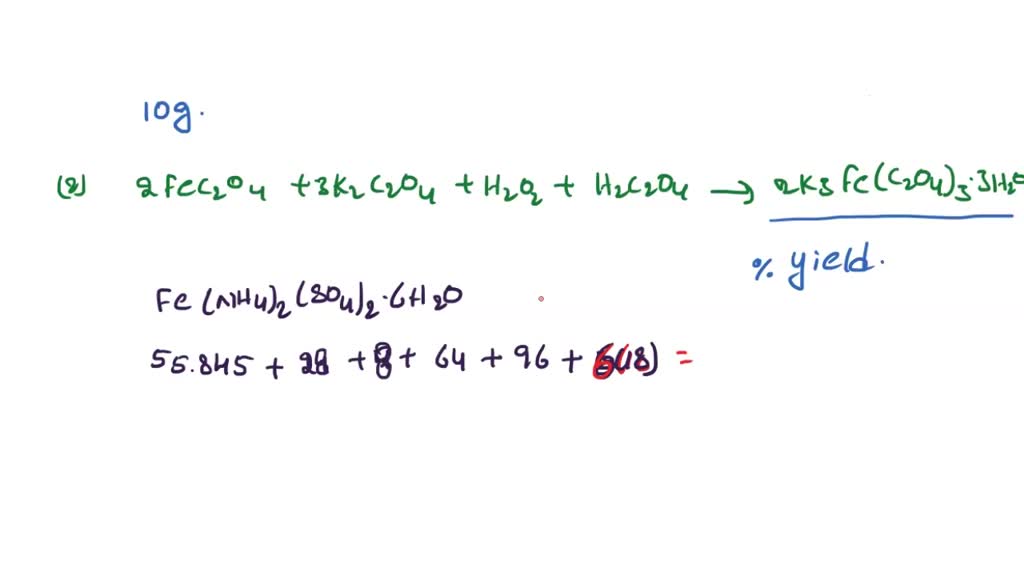 10g.
(2) 2FeC2O4 + 3K2C2O4 + H2O2 + H2C2O4 → 2K3Fe(C2O4)3·3H2O
% yield.
Fe(NH4)2(SO4)2·6H2O
55.845 + 28 + 8 + 64 + 96 + 6(18) =